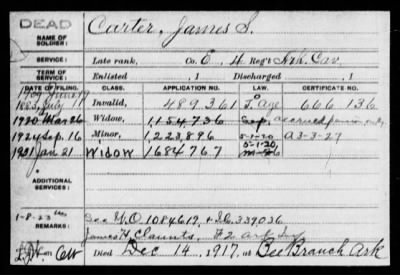 DEAD
NAME OF SOLDIER: Carter, James S.
SERVICE: Late rank, Co. E, 4 Reg't Ark. Cav.
TERM OF SERVICE: Enlisted , 1 Discharged , 1
DATE OF FILING. CLASS. APPLICATION NO. LAW. CERTIFICATE NO.
1883, July Invalid, 489,361 J. Age 666,136
1920 Mar 26 Widow, 1,154,736 Sep. accrued pension only
1924 Sep. 16 Minor, 1,223,896 5-1-20 A3-3-27
1931 Jan 21 Widow 1684767 5-1-20,
ADDITIONAL SERVICES:
1-8-23
REMARKS: See W.O. 1084619, + I.C. 339036
James H. Claunts #2 Ark Inf
Died Dec 14, 1917, at Bee Branch Ark